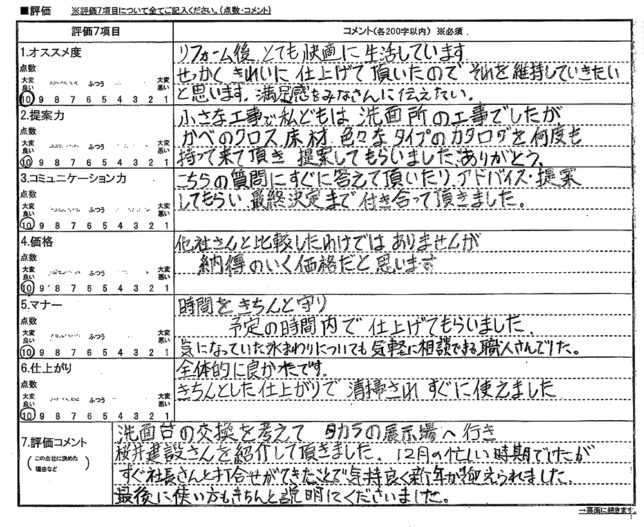 ■評価　※評価7項目について全てご記入ください。（点数・コメント）
評価7項目
コメント（各200字以内）※必須
1.オススメ度
点数
大変良い ふつう 大変悪い
10 9 8 7 6 5 4 3 2 1
リフォーム後、とても快適に生活しています
せっかくきれいに仕上げて頂いたのでそれを維持していきたい
と思います。満足感をみなさんに伝えたい。
2.提案力
点数
大変良い ふつう 大変悪い
10 9 8 7 6 5 4 3 2 1
小さな工事で私どもは洗面所の工事でしたが
かべのクロス、床材、色々なタイプのカタログを何度も
持って来て頂き 提案してもらいました。ありがとう。
3.コミュニケーション力
点数
大変良い ふつう 大変悪い
10 9 8 7 6 5 4 3 2 1
こちらの質問にすぐに答えて頂いたり、アドバイス・提案
してもらい 最終決定まで付き合って頂きました。
4.価格
点数
大変良い ふつう 大変悪い
10 9 8 7 6 5 4 3 2 1
他社さんと比較したわけではありませんが
納得のいく価格だと思います
5.マナー
点数
大変良い ふつう 大変悪い
10 9 8 7 6 5 4 3 2 1
時間をきちんと守り
予定の時間内で仕上げてもらいました。
気になっていた水まわりについても気軽に相談できる職人さんでした。
6.仕上がり
点数
大変良い ふつう 大変悪い
10 9 8 7 6 5 4 3 2 1
全体的に良かたです。
きちんとした仕上がりで 清掃され すぐに使えました
7.評価コメント
（この会社に決めた理由など）
洗面台の交換を考えて タカラの展示場へ行き
桜井建設さんを紹介して頂きました。12月の忙しい時期でしたが
すぐ社長さんと打合せができたことで気持良く新年が迎えられました。
最後に使い方もきちんと説明くださいました。
→裏面に続きます。